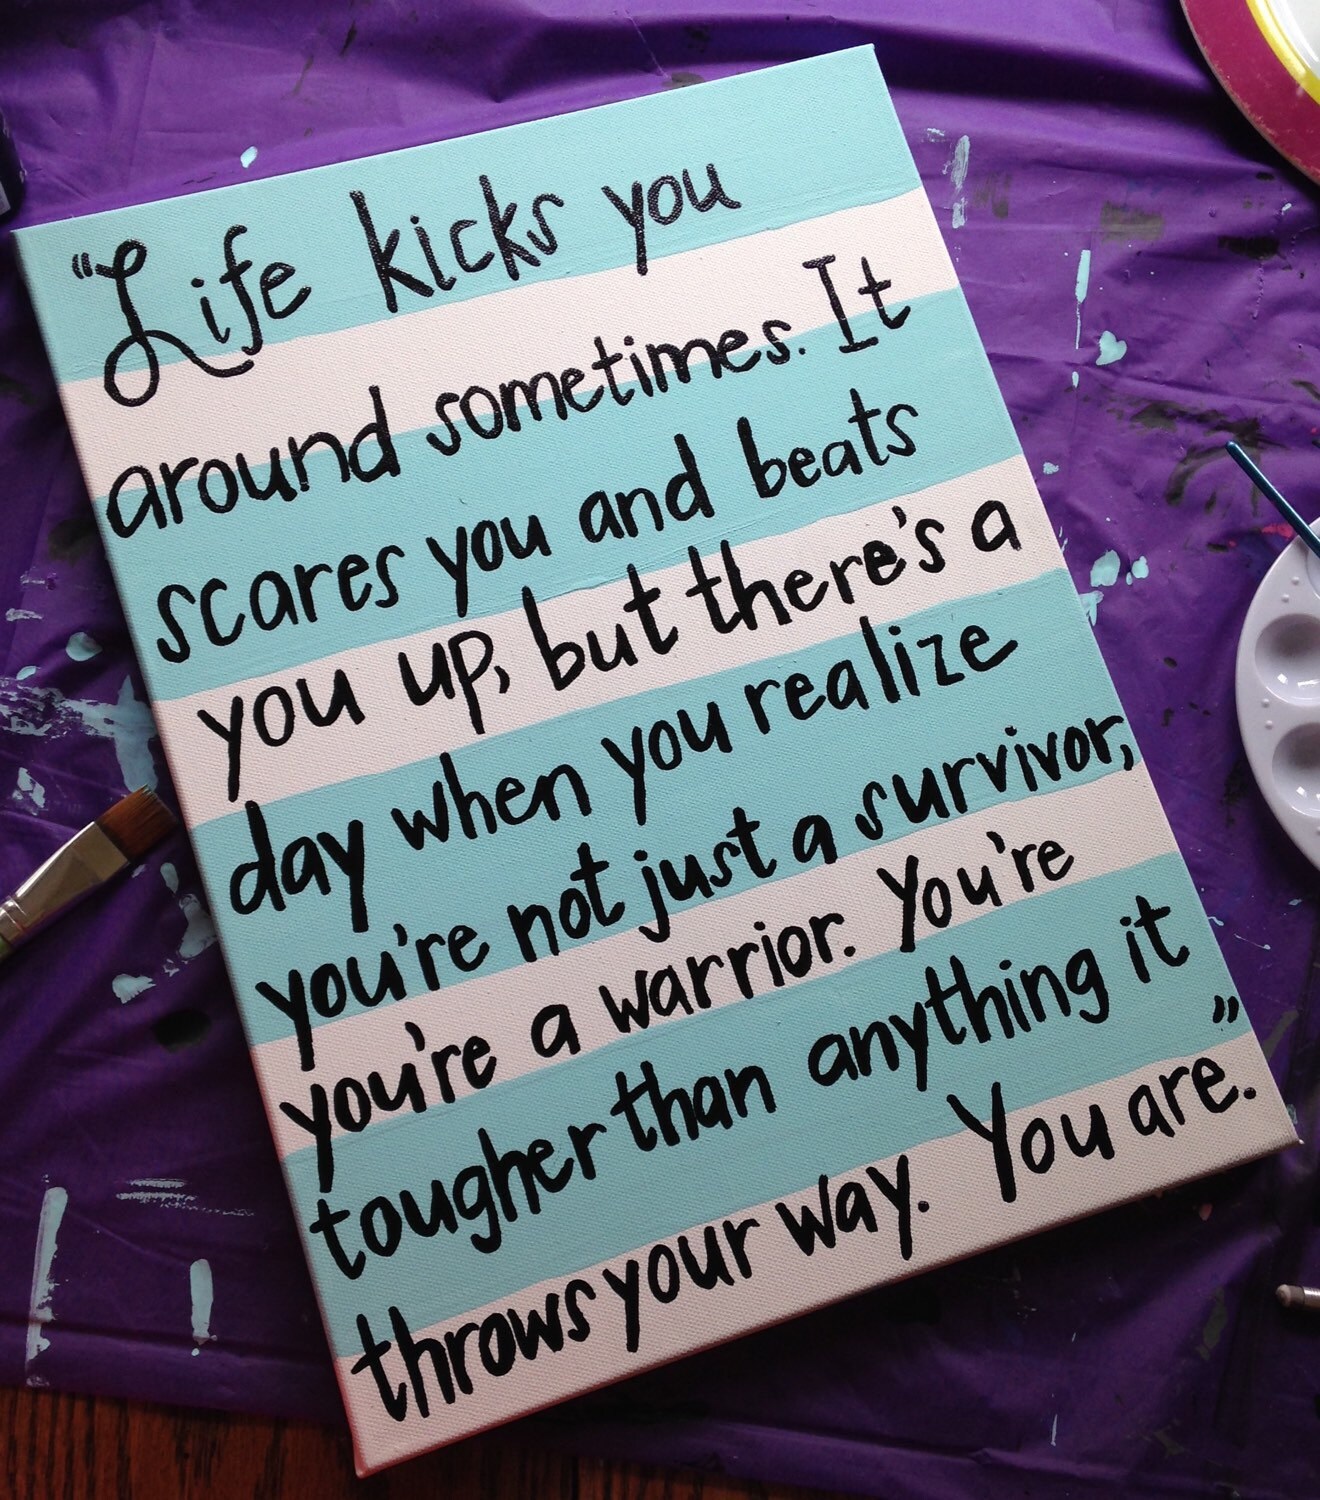 “Life kicks you
around sometimes. It
scares you and beats
you up, but there's a
day when you realize
you're not just a survivor,
you're a warrior. You're
tougher than anything it
throws your way. You are.”